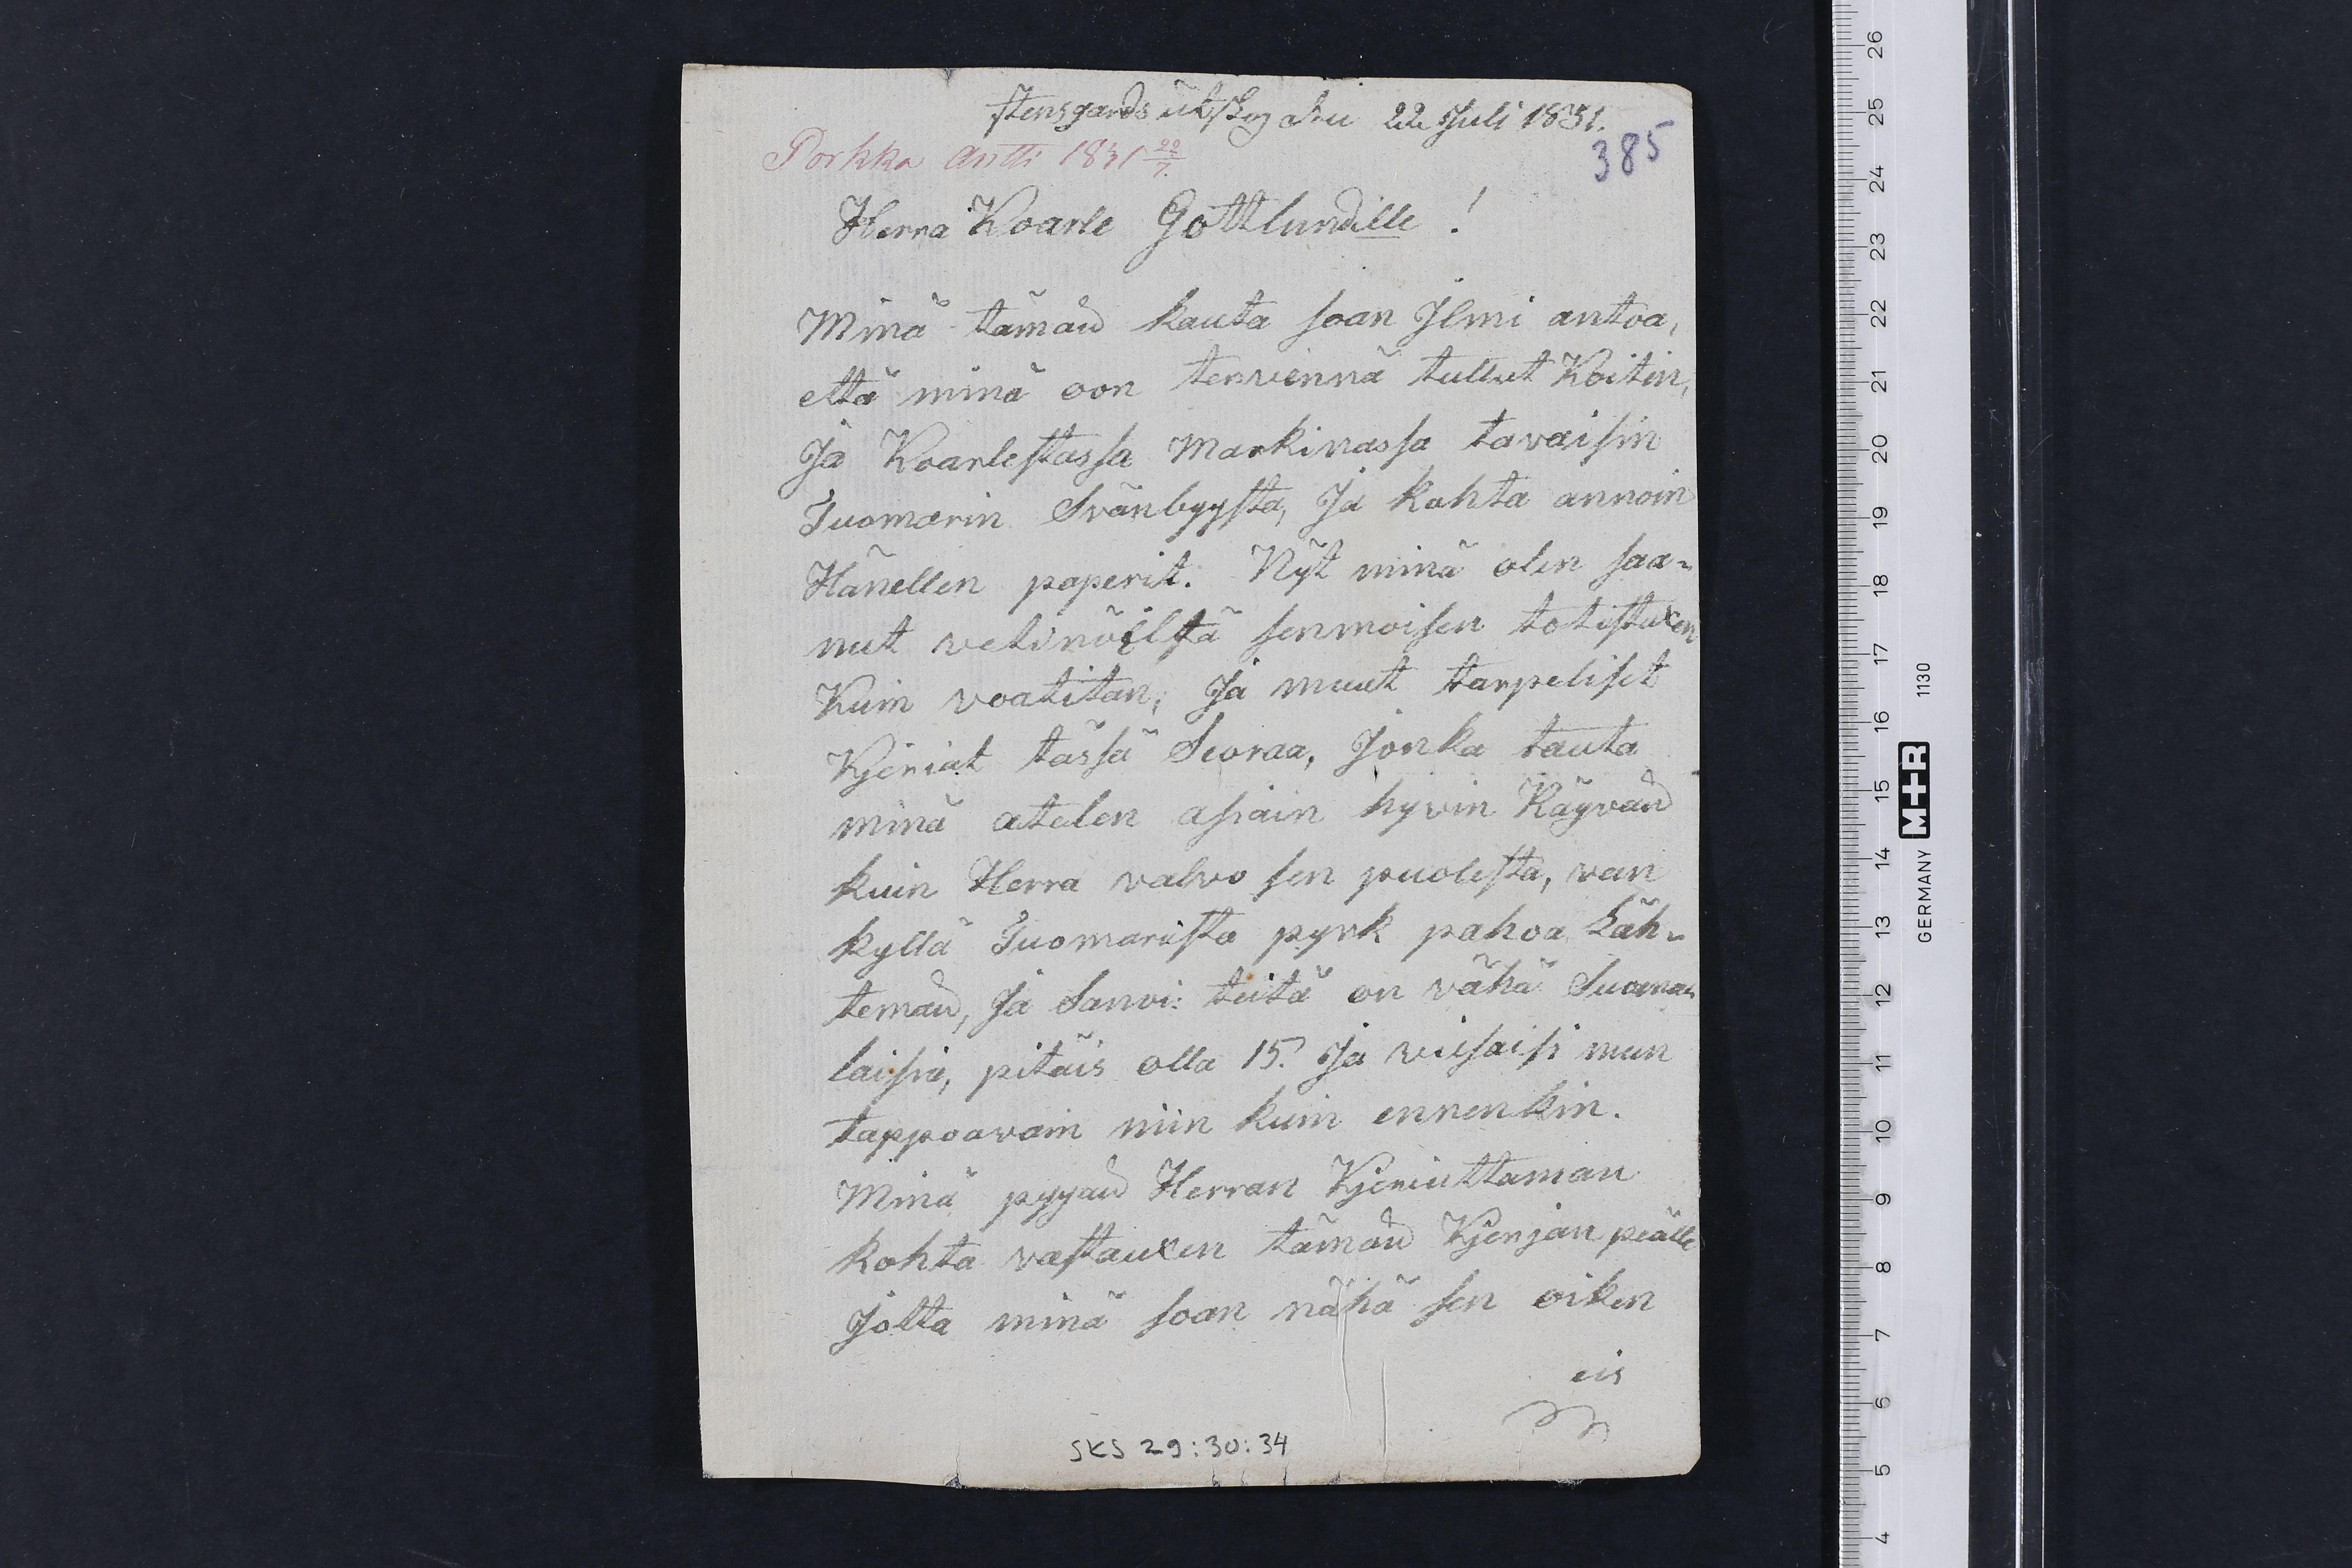 stensgårds utskog den 22 Juli 1831.
Porkka Antti 1831 22/7.
385
Herra Koarle Gottlundille!
Minä tämän kauta soan Jlmi antoa,
että minä oon tervennä tullut Koitin,
Ja Koarlestassa Markinassa tavaisin
Tuomarin Svänbyysta, Ja kohta annoin
Hänellen paperit. Nyt minä olen saa-
nut senmoisen totistuxen
Kuin voatitan, Ja muut tarpeliset
Kjeriat tässä Seoraa, Jonka tauta
minä atelen asiain hyvin Käyvän
kuin Herra valvo sen puolesta, van
kyllä Tuomarista pyrk pahoa läh-
temän, Ja Sanoi: teitä on vähä Suoma-
laisia, pitäis olla 15. Ja viisaisi mun
tappoavain niin kuin ennenkin.
Minä pyyän Herran Kjeriuttaman
kohta vastauxen tämän Kjerjan peälle
Jotta minä soan nähä sen oiken
eis
SKS 29:30:34
26
25
24
23
22
21
20
19
18
17
16
15
14
13
12
11
10
9
8
7
6
5
4
GERMANY M+R 1130